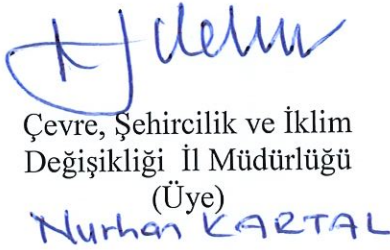 Çevre, Şehircilik ve İklim
Değişikliği İl Müdürlüğü
(Üye)
Nurhan KARTAL